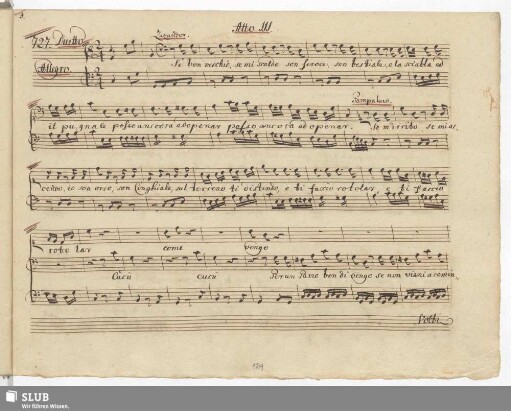 Atto III.
Duetto
Allegro.
Se ben vecchio, se mi scaldo son feroce, son bestiale, e la sciabla ed
il pugnale posso ancora adoperar posso ancora adoperar. Se m'irrito, se mi ac
cendo, io son orso, son Cinghiale, sul terreno ti distendo, e ti faccio rotolar, e ti faccio
roto lar come vengo
Cucù cucù Per un pazzo ben di vengo se non
Volti
SLUB
Wir führen Wissen.